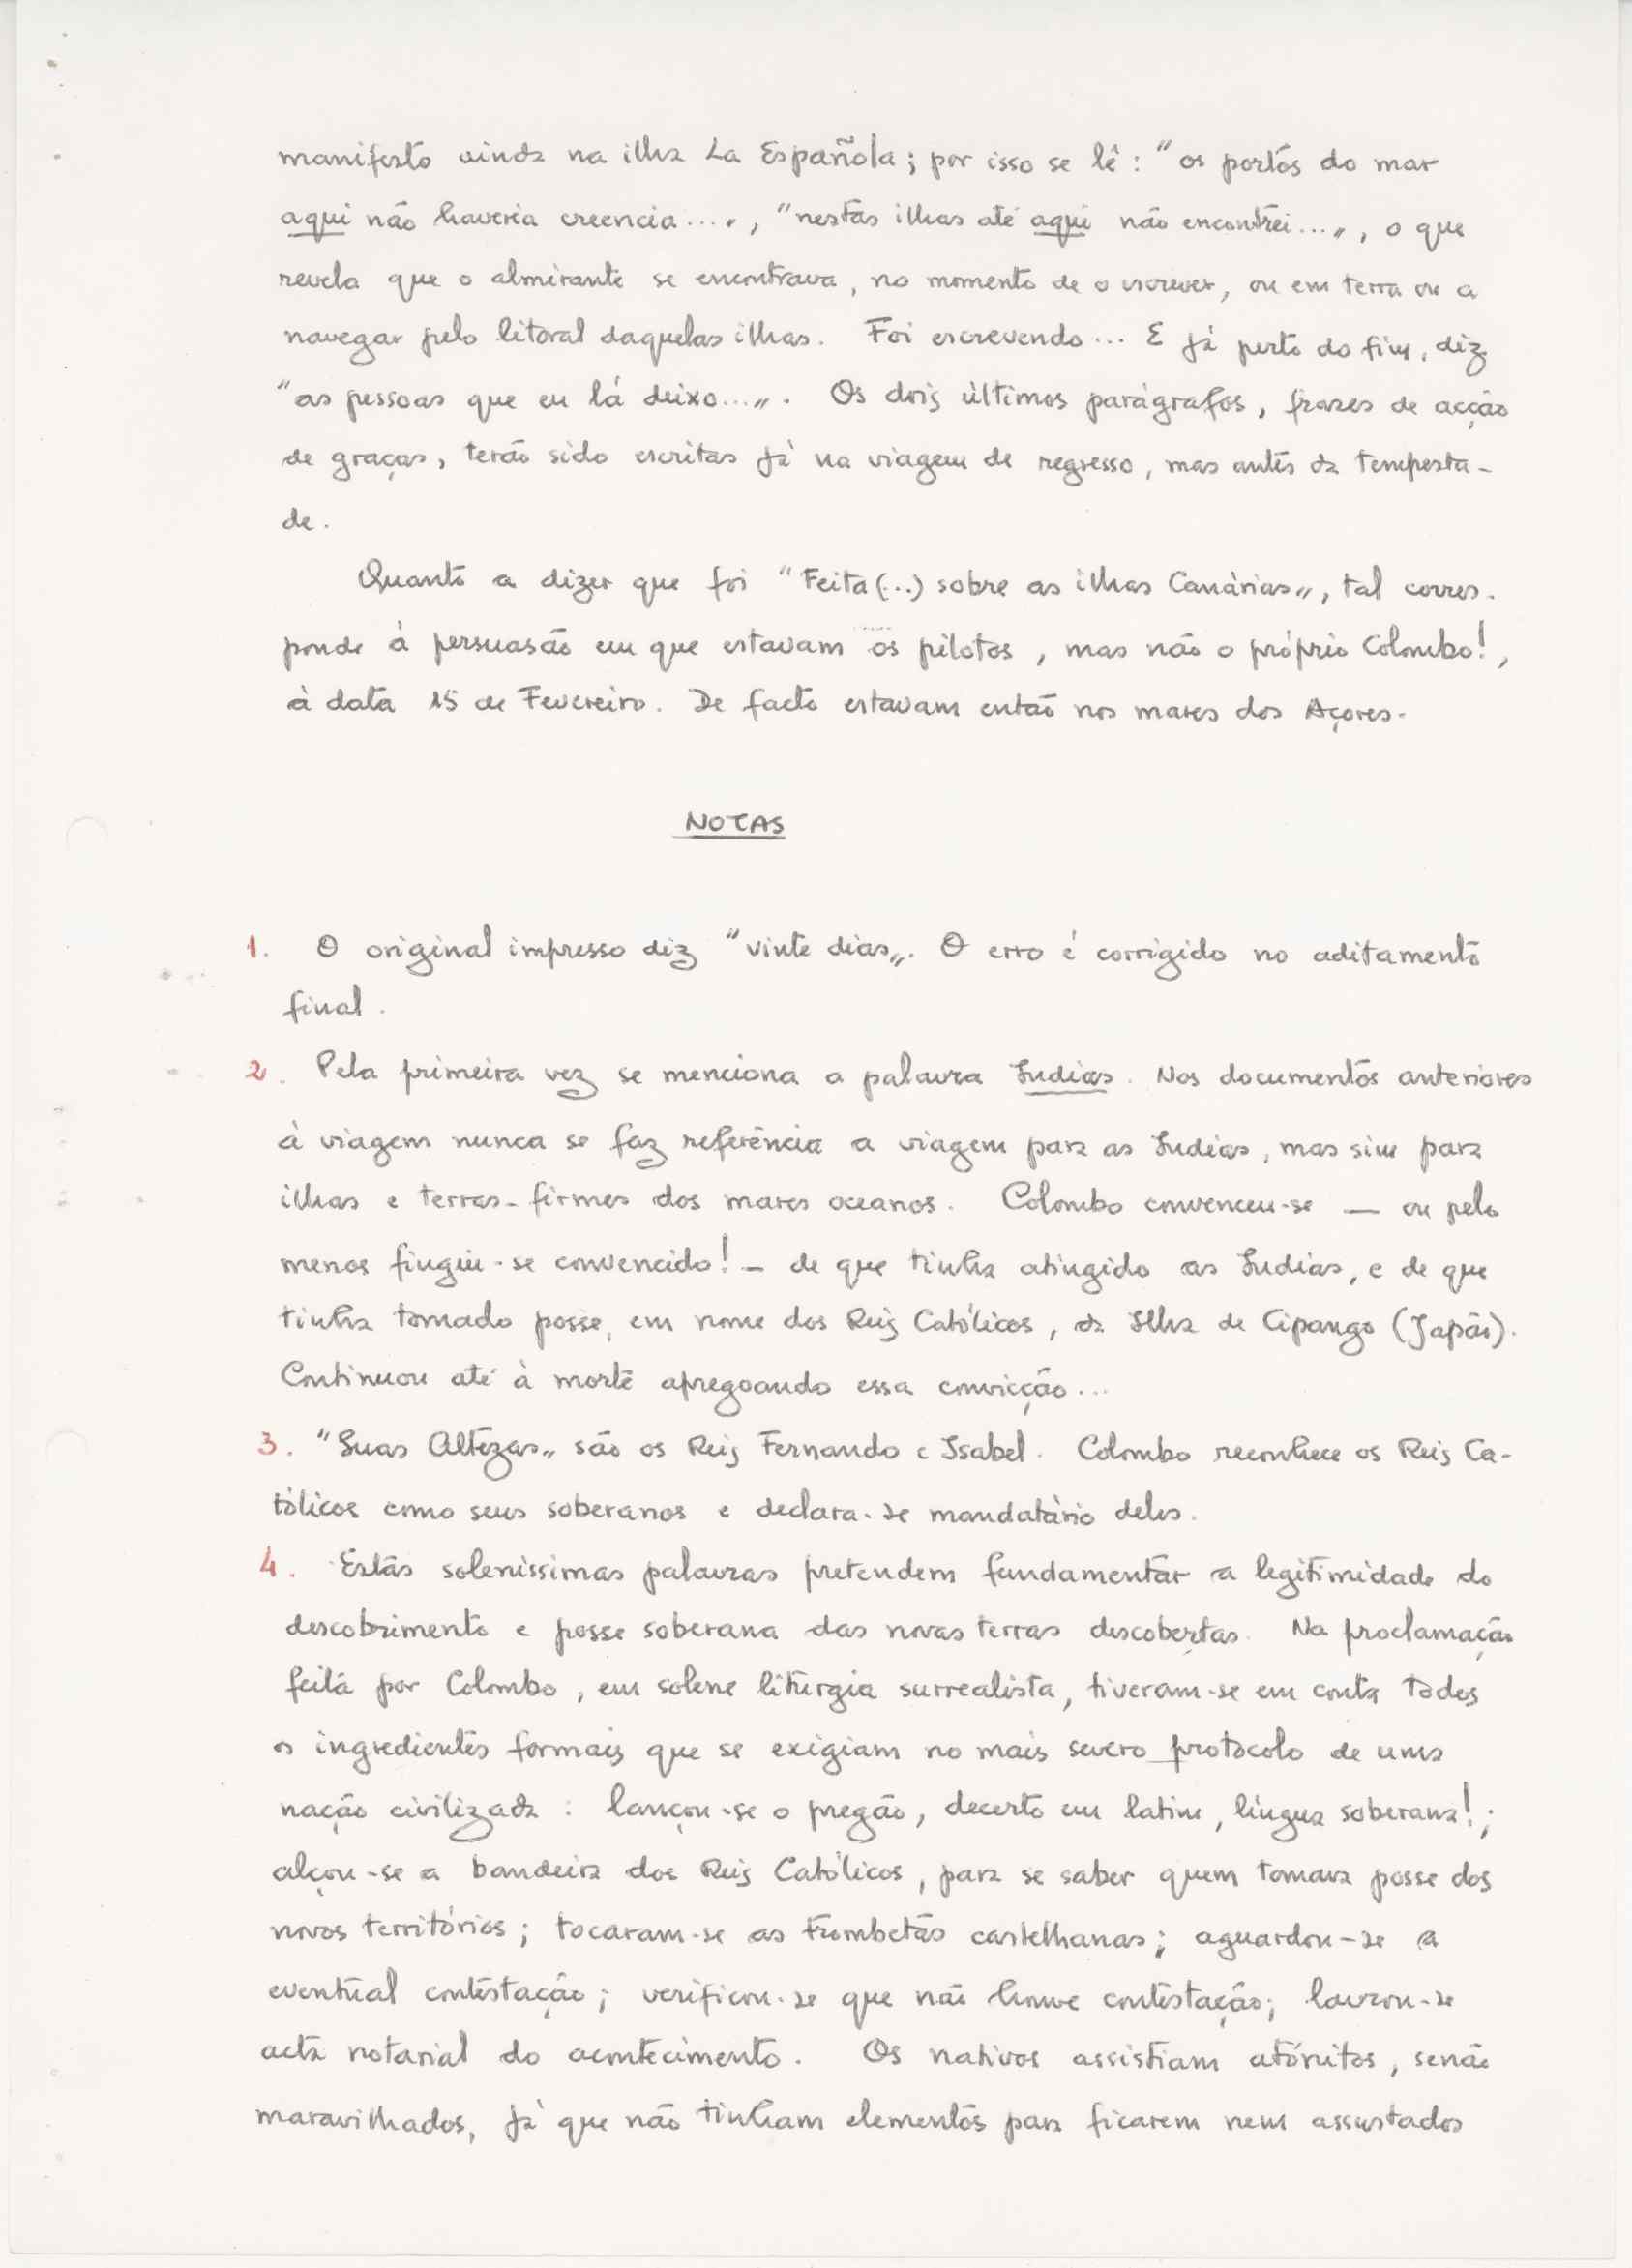 manifesto ainda na ilha La Española; por isso se lê: "os portos do mar
aqui não haveria creencia...„, "nestas ilhas até aqui não encontrei...„, o que
revela que o almirante se encontrava, no momento de o escrever, ou em terra ou a
navegar pelo litoral daquelas ilhas. Foi escrevendo... E já perto do fim, diz
"as pessoas que eu lá deixo...„. Os dois últimos parágrafos, frases de acção
de graças, terão sido escritas já na viagem de regresso, mas antes da tempesta-
de.
Quanto a dizer que foi "Feita (...) sobre as ilhas Canárias„, tal corres-
ponde à persuasão em que estavam os pilotos, mas não o próprio Colombo!,
à data 15 de Fevereiro. De facto estavam então nos mares dos Açores.
NOTAS
1. O original impresso diz "vinte dias„. O erro é corrigido no aditamento
final.
2. Pela primeira vez se menciona a palavra Indias. Nos documentos anteriores
à viagem nunca se faz referência a viagem para as Indias, mas sim para
ilhas e terras-firmes dos mares oceanos. Colombo convenceu-se — ou pelo
menos fingiu-se convencido! — de que tinha atingido as Indias, e de que
tinha tomado posse, em nome dos Reis Católicos, da Ilha de Cipango (Japão).
Continuou até à morte apregoando essa convicção...
3. "Suas Altezas„ são os Reis Fernando e Isabel. Colombo reconhece os Reis Ca-
tólicos como seus soberanos e declara-se mandatário deles.
4. Estas soleníssimas palavras pretendem fundamentar a legitimidade do
descobrimento e posse soberana das novas terras descobertas. Na proclamação
feita por Colombo, em solene liturgia surrealista, tiveram-se em conta todos
os ingredientes formais que se exigiam no mais severo protocolo de uma
nação civilizada: lançou-se o pregão, decerto em latim, língua soberana!;
alçou-se a bandeira dos Reis Católicos, para se saber quem tomava posse dos
novos territórios; tocaram-se as trombetas castelhanas; aguardou-se a
eventual contestação; verificou-se que não houve contestação; lavrou-se
acta notarial do acontecimento. Os nativos assistiam atónitos, senão
maravilhados, já que não tinham elementos para ficarem nem assustados